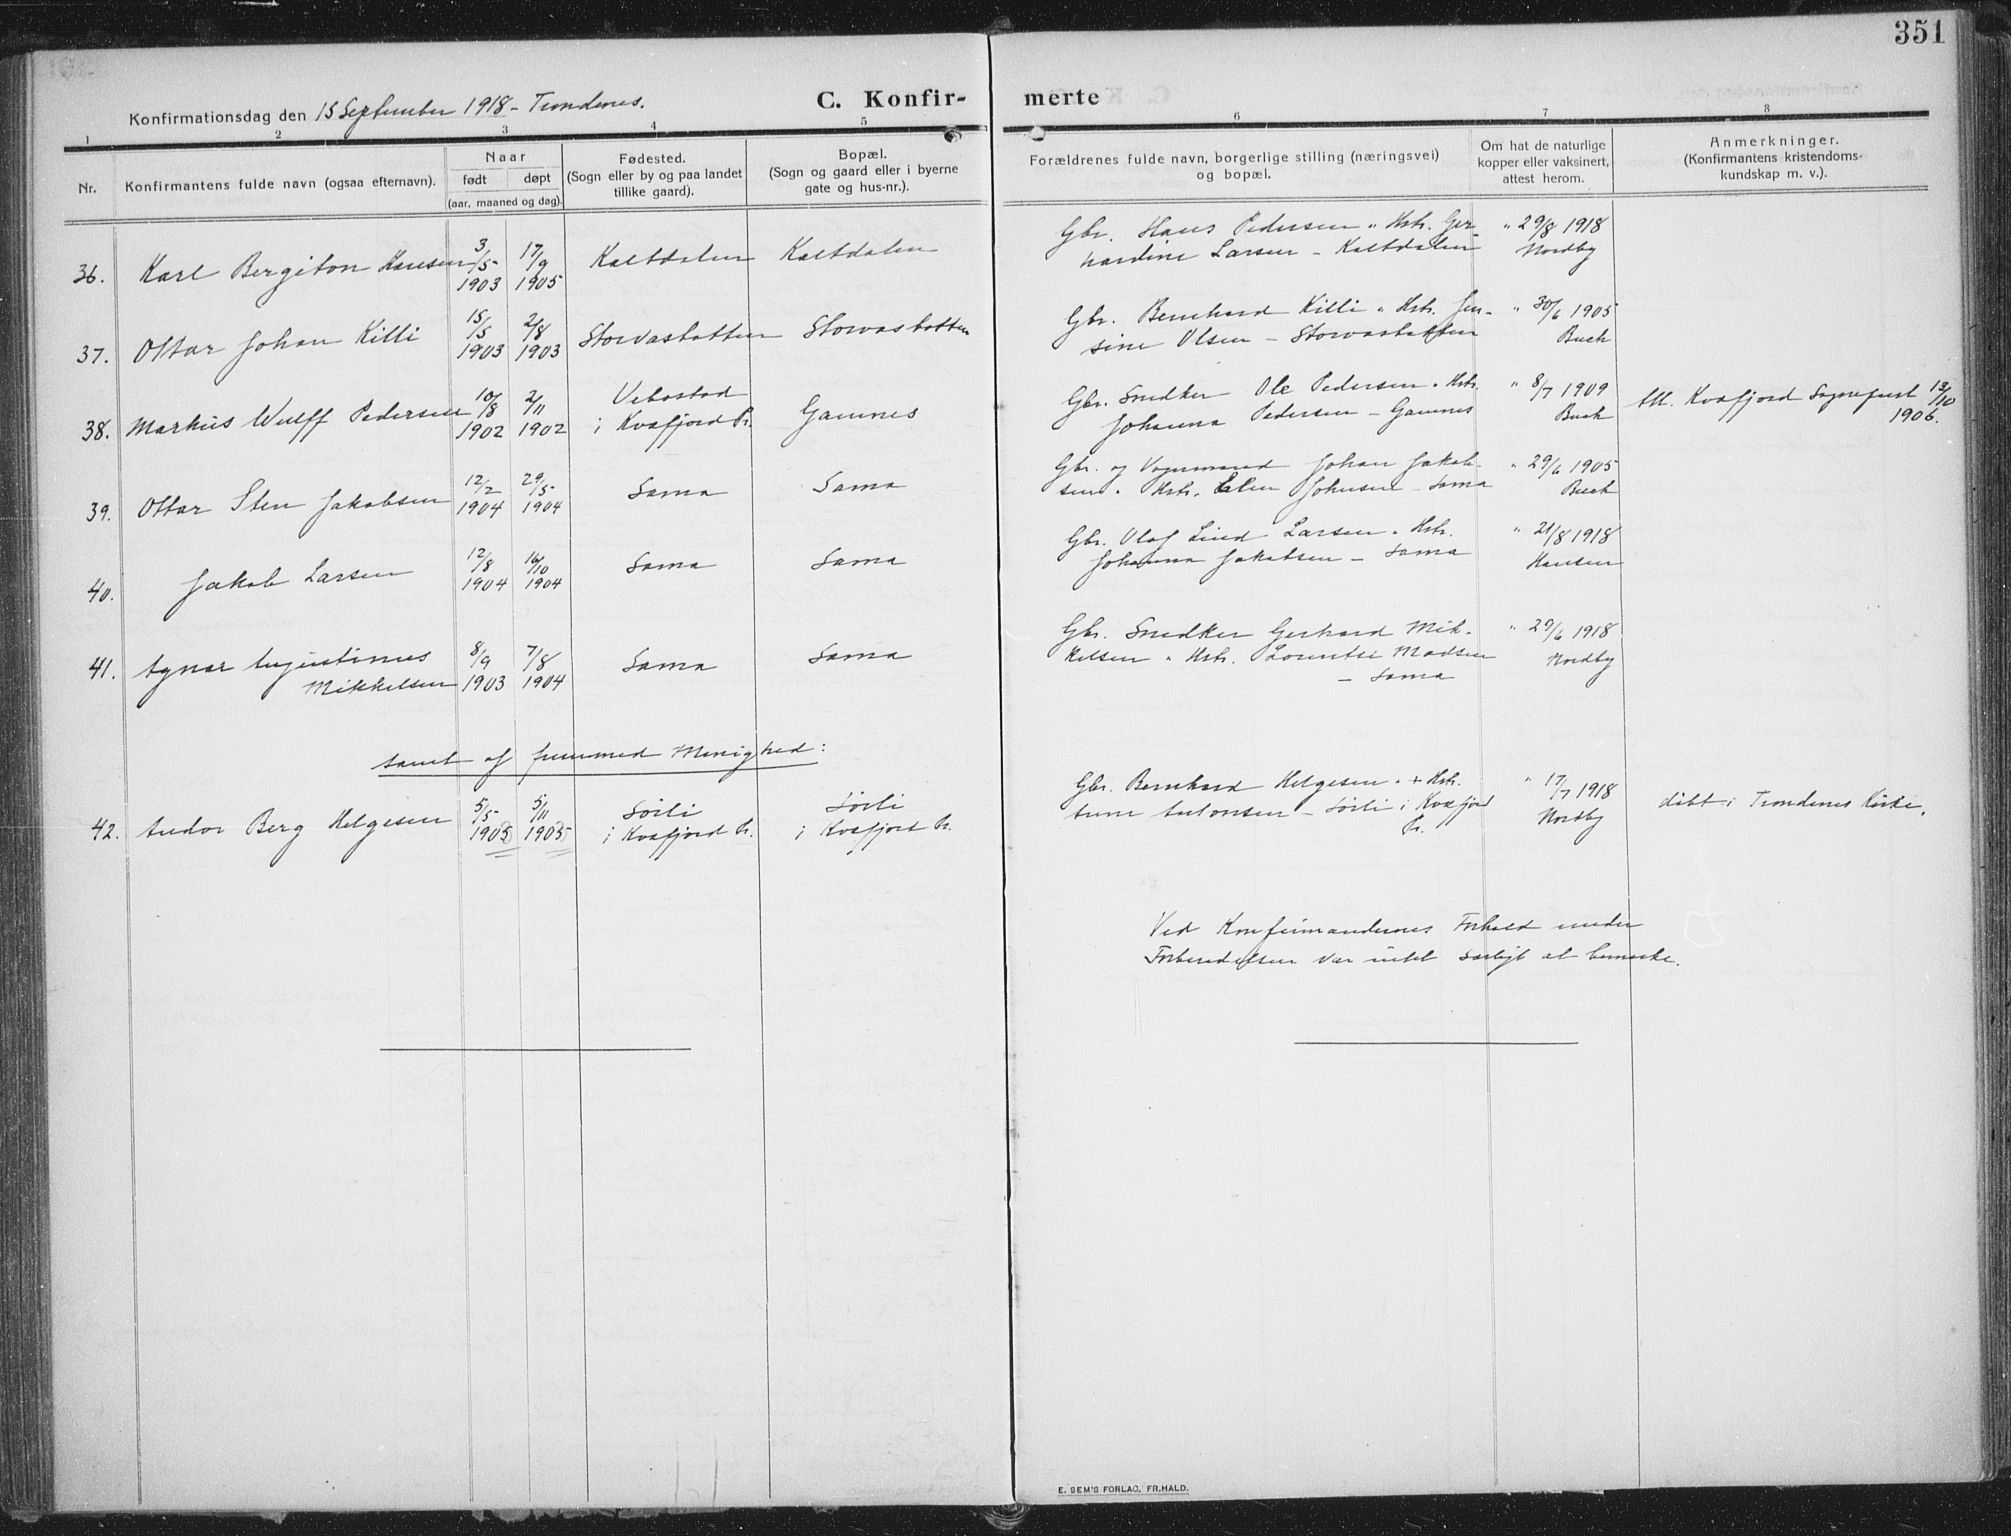 351
Konfirmationsdag den 15 September 1918 - Trondenes.
C. Konfir-
merte
1 2 3 4 5 6 7 8
Nr.
Konfirmantens fulde navn (ogsaa efternavn).
Naar
født døpt
(aar, maaned og dag).
Fødested.
(Sogn eller by og paa landet
tillike gaard).
Bopæl.
(Sogn og gaard eller i byerne
gate og hus-nr.).
Forældrenes fulde navn, borgerlige stilling (næringsvei)
og bopæl.
Om hat de naturlige
kopper eller vaksinert,
attest herom.
Anmerkninger.
(Konfirmantens kristendoms-
kundskap m. v.).
36. Karl Bergiton Hansen
3/5 1903
17/9 1905
Kaltdalen
Kaltdalen
Gbr. Hans Pedersen " Hstr. Ger-
hardine Larsen - Kaltdalen
" 29/8 1918
Nordby
37. Ottar Johan Killi
15/5 1903
2/8 1903
Storvasbotten
Storvasbotten
Gbr. Bernhard Killi " Hstr. Jen-
sine Olsen - Storvasbotten
" 30/6 1905
Buch
38. Markus Wulff Pedersen
10/8 1902
2/11 1902
Vebostad
i Kvæfjord Pr.
Gamnes
Gbr. Snedker Ole Pedersen " Hstr.
Johanna Pedersen - Gamnes
" 8/7 1909
Buch
Att. Kvæfjord Sogneprest 13/10
1906.
39. Ottar Sten Jakobsen
12/2 1904
29/5 1904
Sama
Sama
Gbr. og Vognmand Johan Jakob-
sen " Hstr. Elen Johnsen - Sama
" 29/6 1905
Buch
40. Jakob Larsen
12/8 1904
16/10 1904
Sama
Sama
Gbr. Olaf Lind Larsen " Hstr.
Johanna Jakobsen - Sama
" 21/8 1918
Hansen
41. Agnar Augustinus
Mikkelsen
8/9 1903
7/8 1904
Sama
Sama
Gbr. Snedker Gerhard Mik-
kelsen " Hstr. Lorentse Madsen
- Sama
" 29/6 1918
Nordby
samt af fremmed Menighed:
42. Andor Berg Helgesen
5/5 1903
5/11 1903
Sørli
i Kvæfjord Pr.
Sørli
i Kvæfjord Pr.
Gbr. Bernhard Helgesen " + Hstr.
Anne Antonsen - Sørli i Kvæfjord
Pr.
" 17/7 1918
Nordby
døbt i Trondenes Kirke.
Ved Konfirmandernes Forhold under
Forberedelsen var intet særligt at bemerke.
E. SEM'S FORLAG, FR.HALD.